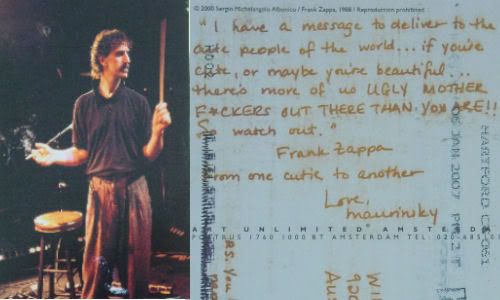 © 2000 Sergio Michelangelo Albonico / Frank Zappa, 1988 / Reproduction prohibited
"I have a message to deliver to the
cute people of the world... if you're
cute, or maybe you're beautiful...
there's more of us UGLY MOTHER
F*CKERS OUT THERE THAN YOU ARE!!
So watch out."
Frank Zappa
From one cutie to another
Love,
maurinsky
ART UNLIMITED AMSTERDA
POSTBUS 1760 1000 BT AMSTERDAM TEL: 020-485
HARTFORD CT 061
JAN 2007 PM 2 T
P.S. You